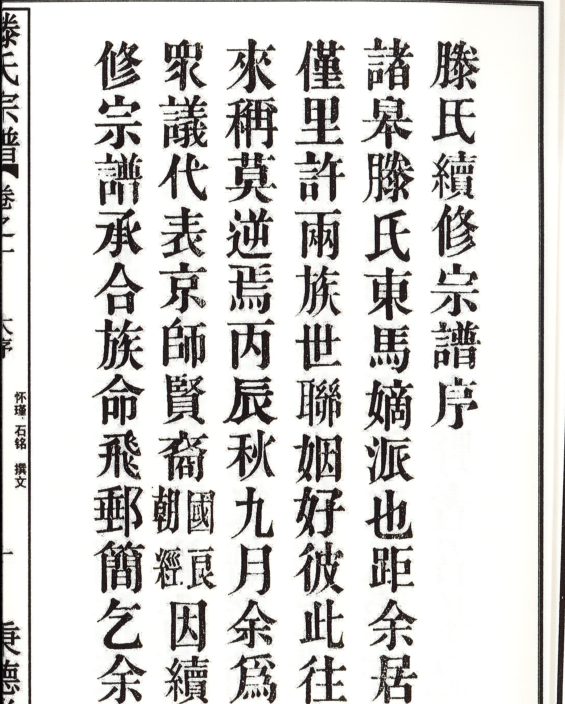 滕氏續修宗譜序
諸皋滕氏東馬嫡派也距余居
僅里許兩族世聯姻好彼此往
來稱莫逆焉丙辰秋九月余爲
衆議代表京師賢裔國良朝經因續
修宗譜承合族命飛郵簡乞余
滕氏宗譜 卷之一 大序
怀瑾 石铭 撰文
秉德